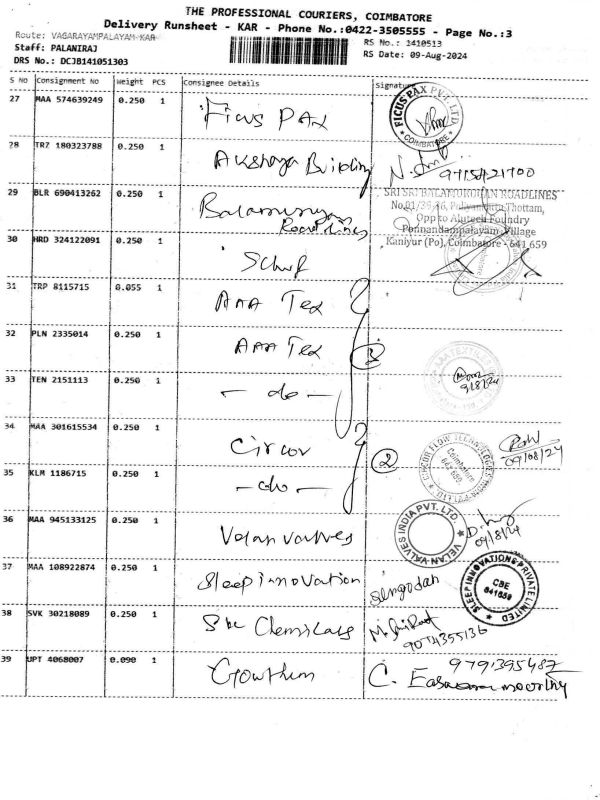 THE PROFESSIONAL COURIERS, COIMBATORE
Delivery Runsheet - KAR - Phone No.:0422-3505555 - Page No.:3
Route: VAGARAYAMPALAYAM-KAR
RS No.: 1410513
Staff: PALANIRAJ
RS Date: 09-Aug-2024
DRS No.: DCJB141051303
S No Consignment No Weight PCS Consignee Details Signature
27 MAA 574639249 0.250 1 Ficus PAX
FICUS PAX PVT. LTD. COIMBATORE
28 TRZ 180323788 0.250 1 Akshaya Building
29 BLR 690413262 0.250 1 Balamurugan Roadlines
SRI SRI BALAMURUGAN ROADLINES
Thottam,
Opp to Alutech Foundry
Ponnandampalayam Village
Kaniyur (Po), Coimbatore - 641 659
30 HRD 324122091 0.250 1
31 TRP 8115715 0.055 1 AAA Tex
32 PLN 2335014 0.250 1 AAA Tex 3
33 TEN 2151113 0.250 1 - do -
9/8/24
34 MAA 301615534 0.250 1 Circor
CIRCOR FLOW TECHNOLOGIES Coimbatore 641 659
09/08/24
35 KLM 1186715 0.250 1 - do - 2
36 MAA 945133125 0.250 1 Velan valves
VELAN VALVES INDIA PVT. LTD.
09/8/24
37 MAA 108922874 0.250 1 Sleep innovation Sengodan
SLEEP INNOVATIONS PRIVATE LIMITED CBE 641659
38 SVK 30218089 0.250 1 Sbc Chemicals
9074355136
39 UPT 4068007 0.090 1 Gowthem
9791395487
C. Easwaramoorthy